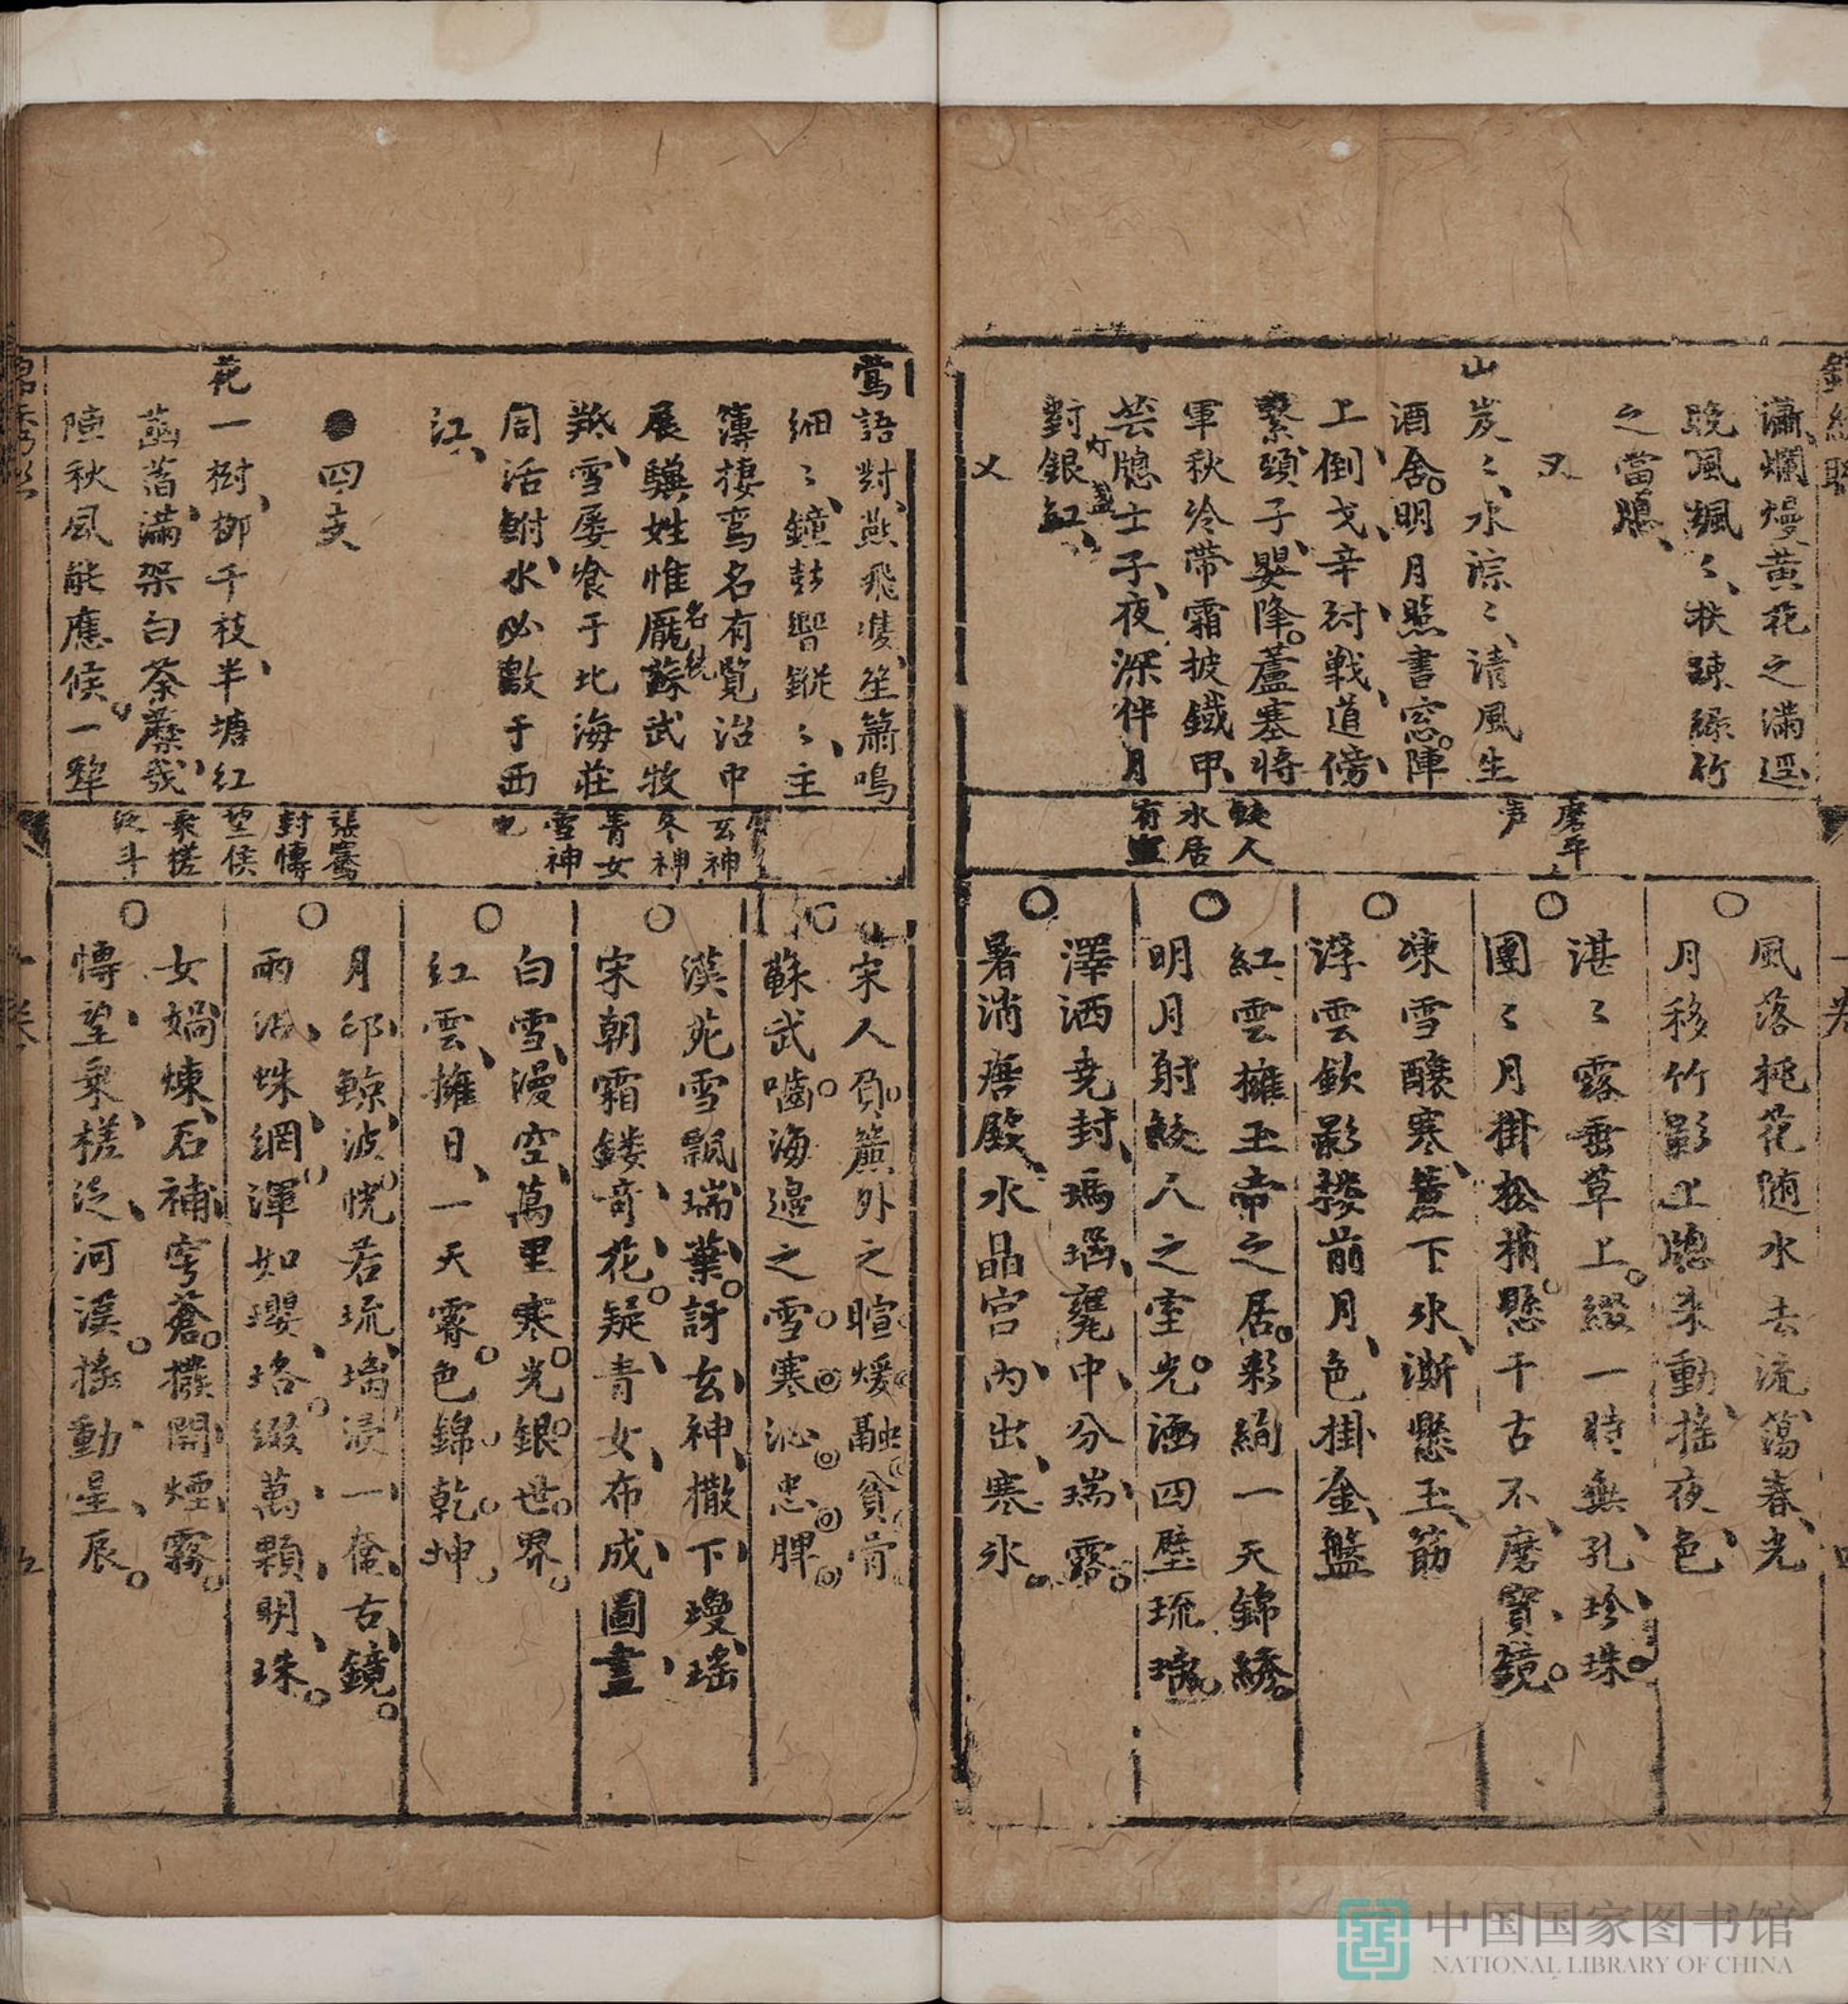 瀟、爛熳黃花之滿逕
晚風颯〻、扶疎綠竹
之當牕、
又
山岌〻、水淙〻、清風生
酒舍。明月照書窓。陣
上倒戈、辛紂戰、道傍
繫頸子、嬰降。蘆塞將
軍秋冷帶霜披鐵甲、
芸牕士子、夜深伴月
對銀缸、
灯盞
又
磨平
声
鮫人
水居
有室
風落桃花随水去流蕩春光
月移竹影上牕來動揺夜色
湛〻露垂草上。綴一時無孔珍珠。
團〻月掛松梢。懸千古不磨寳鏡。
凍雪釀寒、簷下氷、澌懸玉筯
浮雲歛影、發前月、色掛金盤
紅雲擁玉帝之居。彩絢一天錦綉。
明月射鮫人之室。光涵四壁琉璃。
澤洒堯封、瑪瑙、甕中、分瑞露。
暑消唐殿、水晶宮内、出寒氷。
鶯語對、燕飛雙、笙簫鳴
細〻、鐘鼓響鏦〻、主
簿棲鸞名有覧治中
展驥姓惟龎蘇武牧
羝、雪屡飡于北海莊
名統
周活鮒、水必激于西
江、
●四支
花一樹、栁千枝、半塘紅
菡萏滿、架白荼蘼幾、
陣秋風能應候。一犂
玄神
冬神
青女
雪神
也
張騫
封博
望侯
乘槎
泛斗
宋人負簷外之暄煖融貧骨
蘇武嚙海邊之雪寒沁忠脾
漢苑雪飄瑞葉。訝玄神、撒下瓊瑶
宋朝霜鏤竒花。疑青女、布成圖畫
白雪漫空、萬里寒光銀世界。
紅雲擁日、一天霽色錦乾坤。
月印鯨波。恍若琉璃、浸一奩古鏡。
雨沾蛛網。渾如瓔珞。綴萬顆明珠。
女媧煉石補穹蒼。撥開煙霧。
博望乘槎泛河漢。揺動星辰。